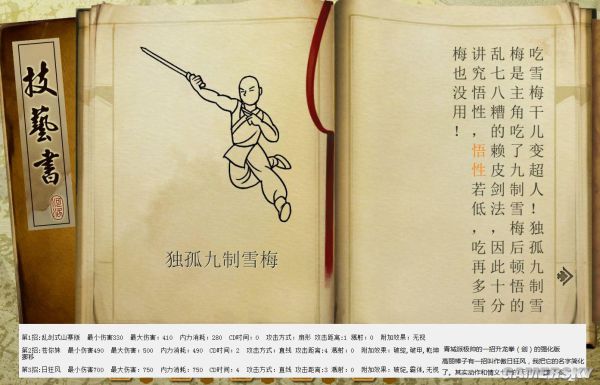 技藝書
独孤九制雪梅
吃雪梅干儿变超人！独孤九制雪
梅是主角吃了九制雪梅后顿悟的
乱七八糟的赖皮剑法，因此十分
讲究悟性，悟性若低，吃再多雪
梅也没用！
第1招:乱剑式山寨版 最小伤害330 最大伤害：410 内力消耗：280 CD时间：0 攻击方式：扇形 攻击距离：1 溅射：0 附加效果：无视
第2招:苍你妹 最小伤害490 最大伤害：500 内力消耗：490 CD时间：2 攻击方式：直线 攻击距离:4 溅射：0 附加效果：破绽，破甲，乾坤
挪移
第3招:日狂风 最小伤害700 最大伤害：750 内力消耗：750 CD时间：4 攻击方式：直线 攻击距离:1 溅射：0 附加效果：破绽，霸体，无视
青城派极帅的一招升龙拳（剑）的强化版
高丽棒子有一招叫作傲日狂风，我把它的名字简化
了。其实动作和情义
GAMERSKY